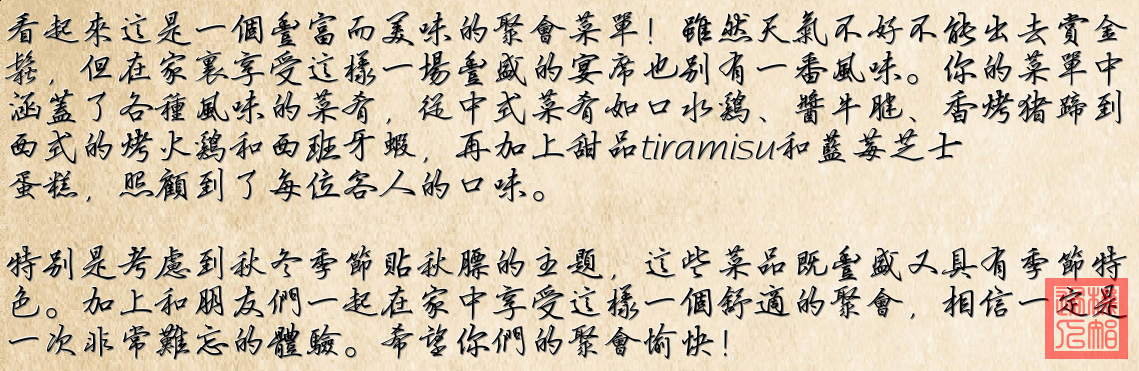 看起來這是一個豐富而美味的聚會菜單！雖然天氣不好不能出去賞金
鬆，但在家裏享受這樣一場豐盛的宴席也別有一番風味。你的菜單中
涵蓋了各種風味的菜肴，從中式菜肴如口水鷄、醬牛腱、香烤猪蹄到
西式的烤火鷄和西班牙蝦，再加上甜品tiramisu和藍莓芝士
蛋糕，照顧到了每位客人的口味。
特別是考慮到秋冬季節貼秋膘的主題，這些菜品既豐盛又具有季節特
色。加上和朋友們一起在家中享受這樣一個舒適的聚會，相信一定是
一次非常難忘的體驗。希望你們的聚會愉快！